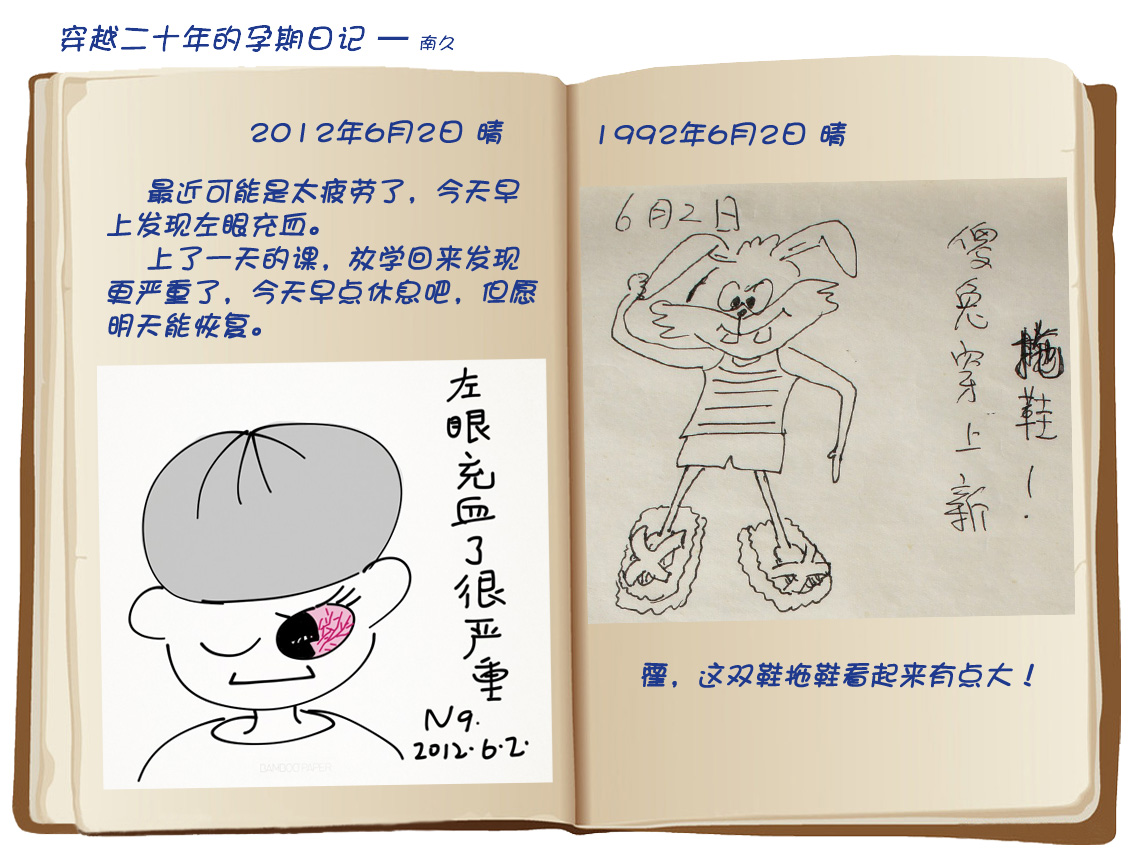 穿越二十年的孕期日记 — 南久
2012年6月2日 晴
最近可能是太疲劳了，今天早
上发现左眼充血。
上了一天的课，放学回来发现
更严重了，今天早点休息吧，但愿
明天能恢复。
左眼充血了很严重
N9.
2012.6.2.
BAMBOO PAPER
1992年6月2日 晴
6月2日
傻兔穿上新
拖鞋！
，这双鞋拖鞋看起来有点大！